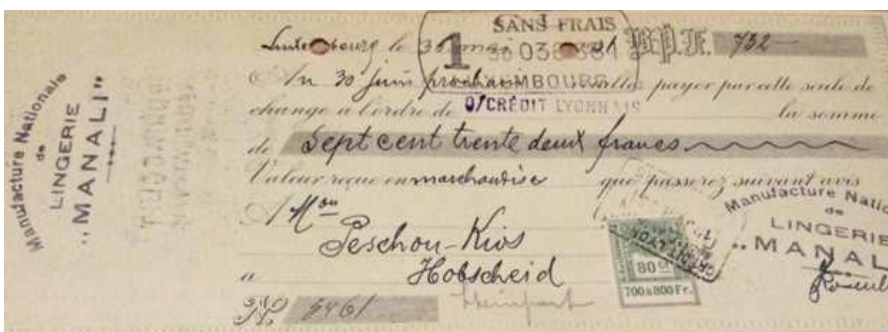 Manufacture Nationale
de
LINGERIE
„MANALI”
SANS FRAIS
1
Luxembourg le 30 mai 31 B.P.F. 732
Au 30 juin prochain veuillez payer par cette seule de
LUXEMBOURG
change à l'ordre de O/CRÉDIT LYONNAIS la somme
de Sept cent trente deux francs
Valeur reçue en marchandise que passerez suivant avis
A Mon
Peschon-Kios
à Hobscheid
No 5461
80
700 à 800 Fr.
Manufacture Natio
de
LINGERIE
„MANAL